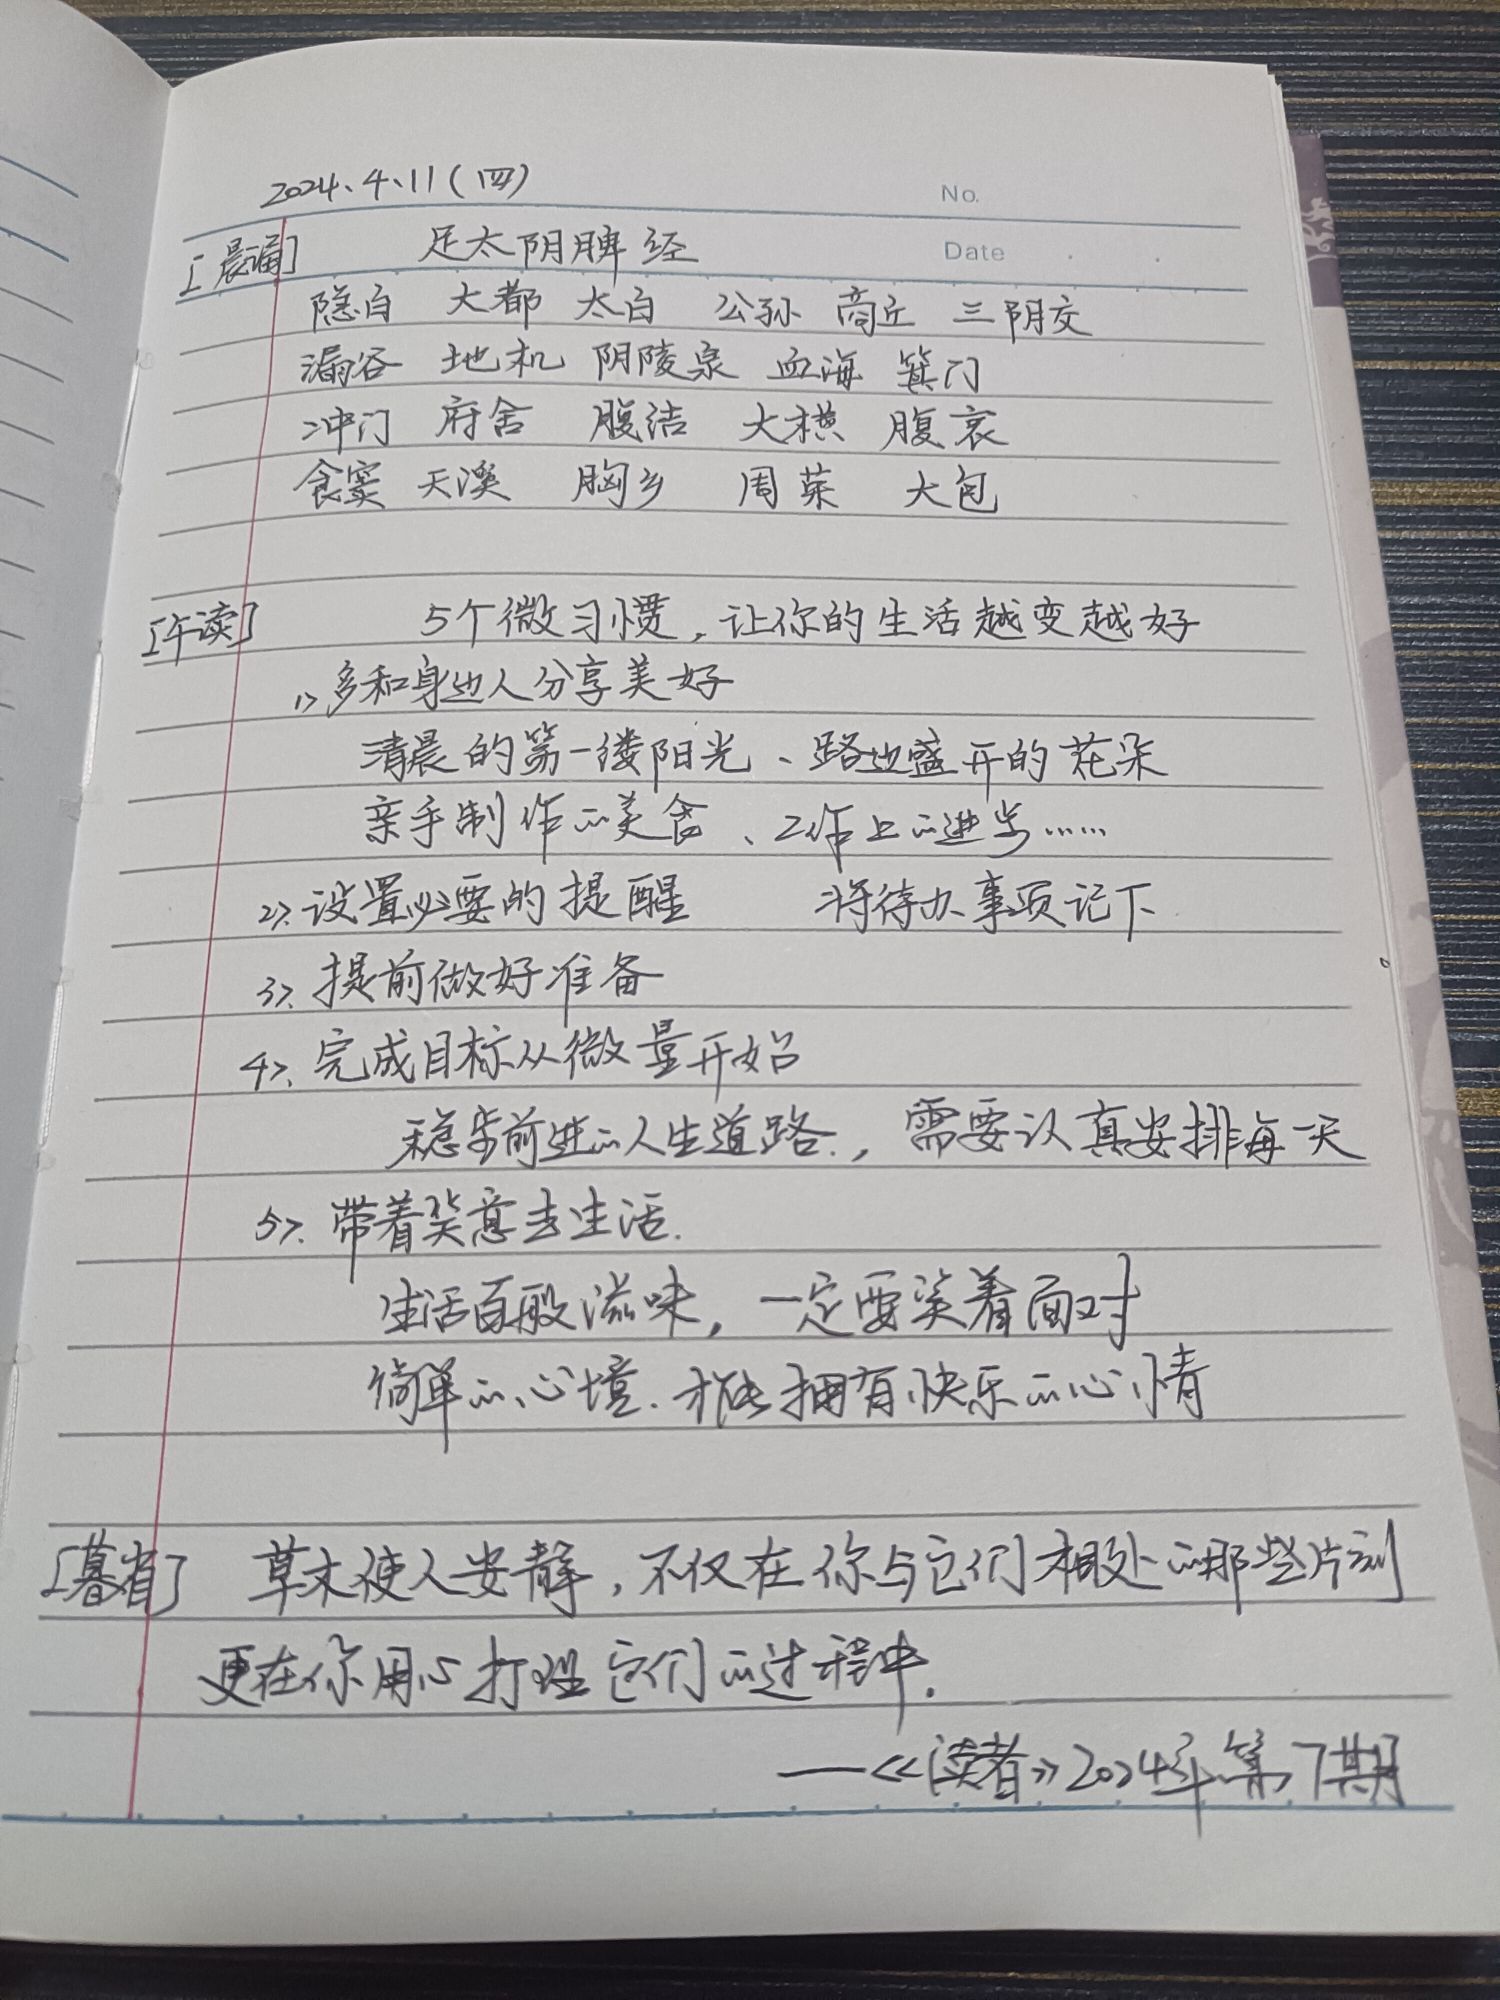 2024.4.11(四)
No.
[晨诵] 足太阴脾经
Date
隐白 大都 太白 公孙 商丘 三阴交
漏谷 地机 阴陵泉 血海 箕门
冲门 府舍 腹结 大横 腹哀
食窦 天溪 胸乡 周荣 大包
[午读] 5个微习惯,让你的生活越变越好
1>多和身边人分享美好
清晨的第一缕阳光、路边盛开的花朵
亲手制作的美食、工作上的进步……
2>.设置必要的提醒 将待办事项记下
3>.提前做好准备
4>.完成目标从微量开始
稳步前进的人生道路.,需要认真安排每一天
5>.带着笑意去生活.
生活百般滋味,一定要笑着面对
简单的心境.才能拥有快乐的心情
[暮省] 草木使人安静,不仅在你与它们相处的那些片刻
更在你用心打理它们的过程中.
——《读者》2024年第7期